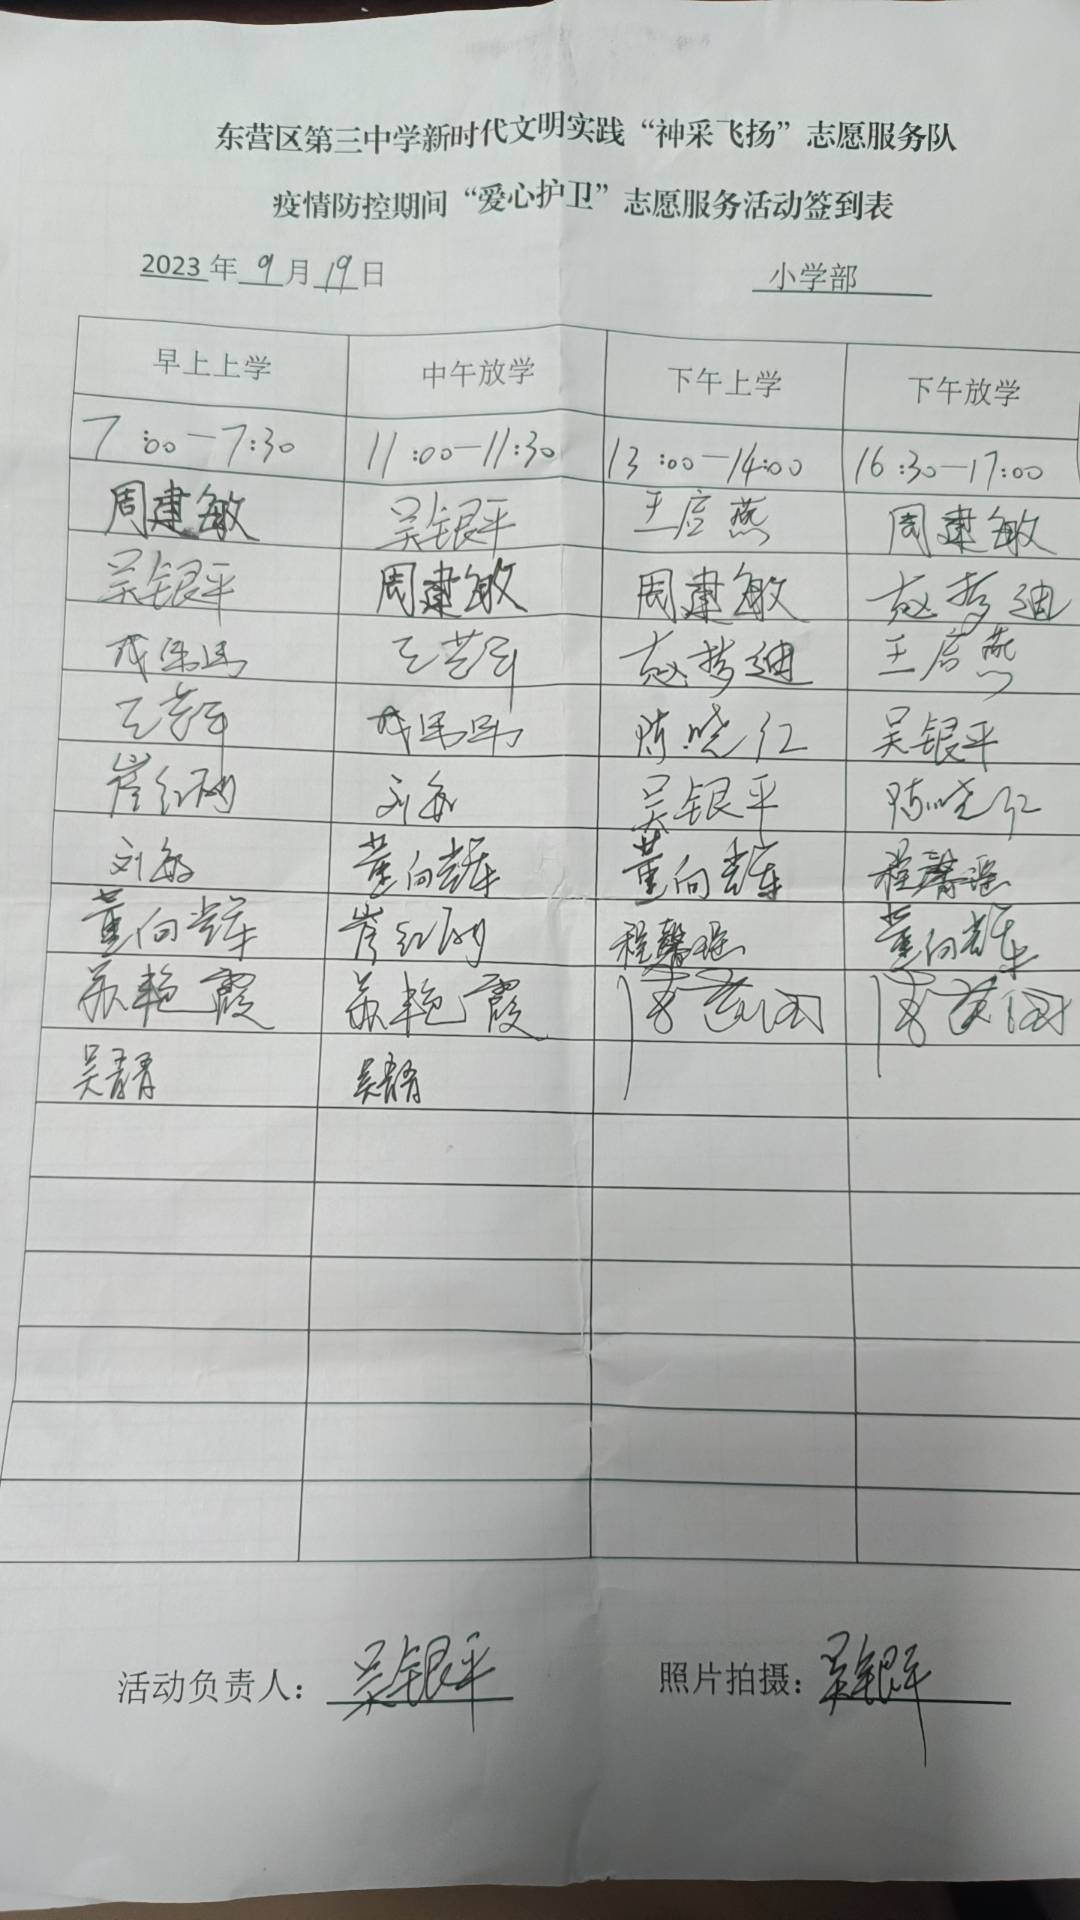 东营区第三中学新时代文明实践“神采飞扬”志愿服务队
疫情防控期间“爱心护卫”志愿服务活动签到表
2023年9月19日 小学部
早上上学 中午放学 下午上学 下午放学
7:00-7:30 11:00-11:30 13:00-14:00 16:30-17:00
周建敏 吴银平 王启燕 周建敏
吴银平 周建敏 周建敏 赵梦迪
赵梦迪 王启燕
陈晓红 吴银平
崔红 刘敏 吴银平 陈晓红
刘敏 董向辉 董向辉 程馨瑶
董向辉 崔红 程馨瑶 董向辉
苏艳霞 苏艳霞
吴青 吴青
活动负责人：吴银平 照片拍摄：吴银平